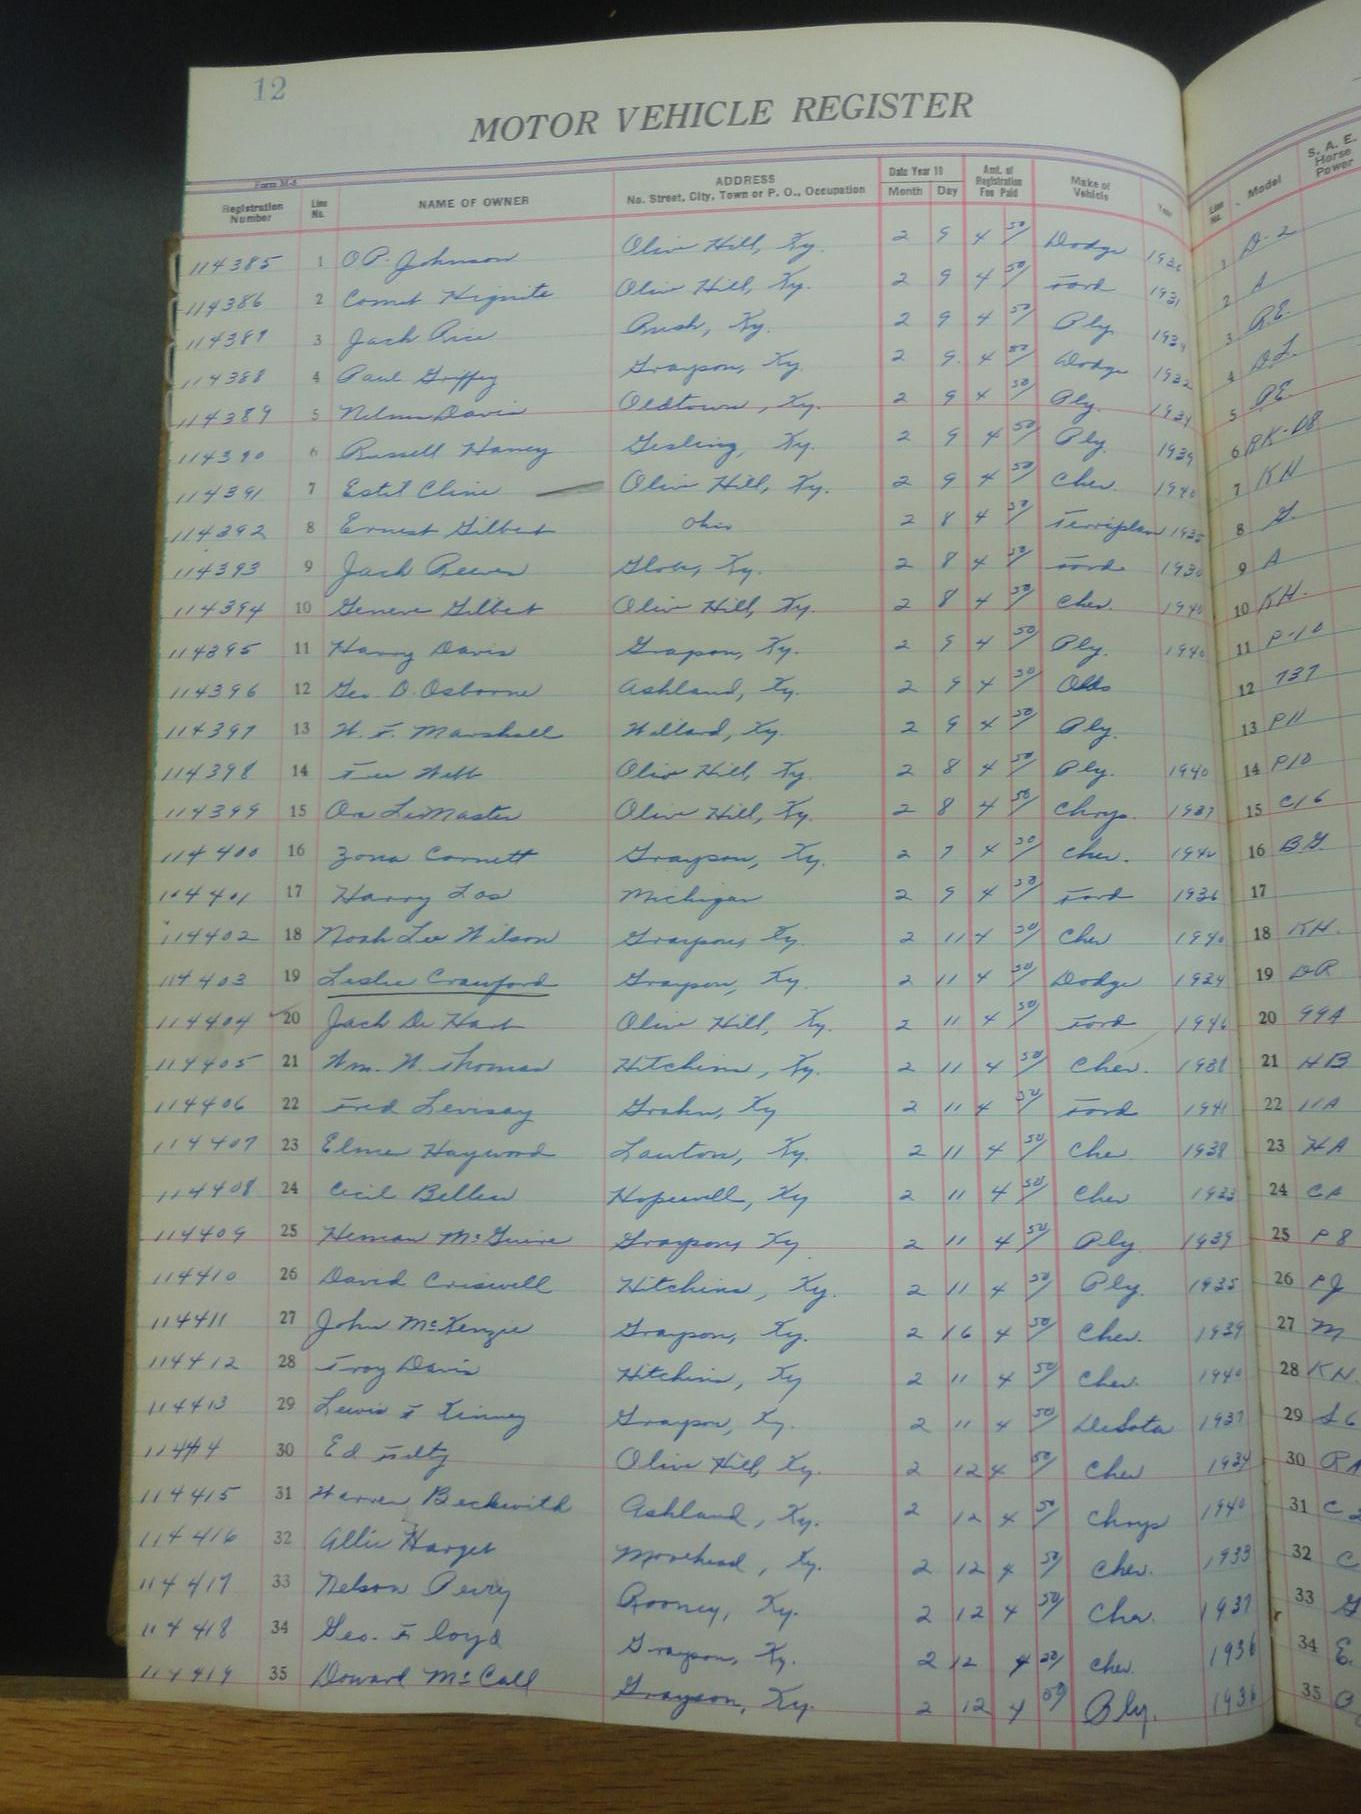 12
MOTOR VEHICLE REGISTER
Form M-5
Registration Number Line No. NAME OF OWNER ADDRESS No. Street, City, Town or P. O., Occupation Date Year 19 Month Day Amt. of Registration Fee Paid Make of Vehicle Year Line No. Model S. A. E. Horse Power
114385 1 O.P. Johnson Olive Hill, Ky. 2 9 4 50 Dodge 1936 1 D-2
114386 2 Comet Hignite Olive Hill, Ky. 2 9 4 50 Ford 1931 2 A
114387 3 Jack Rice Rush, Ky. 2 9 4 50 Ply. 1934 3 P.E.
114388 4 Paul Griffey Grayson, Ky. 2 9 4 50 Dodge 1932 4 D.L.
114389 5 Davis Oldtown, Ky. 2 9 4 50 Ply. 1934 5 P.E.
114390 6 Russell Haney Gesling, Ky. 2 9 4 50 Ply. 1939 6
114391 7 Estil Cline Olive Hill, Ky. 2 9 4 50 Chev. 1940 7 KH
114392 8 Ernest Gilbert Ohio 2 8 4 50 Terriplan 1935 8 G.
114393 9 Jack Reeves 2 8 4 50 Ford 1930 9 A
114394 10 Geneve Gilbert Olive Hill, Ky. 2 8 4 50 Chev. 1940 10 KH.
114395 11 Harry Davis Grayson, Ky. 2 9 4 50 Ply. 1940 11 P-10
114396 12 Geo. D. Osborne Ashland, Ky. 2 9 4 50 Olds 12 737
114397 13 W. F. Marshall Willard, Ky. 2 9 4 50 Ply. 13 P11
114398 14 Webb Olive Hill, Ky. 2 8 4 50 Ply. 1940 14 P10
114399 15 Ora LeMaster Olive Hill, Ky. 2 8 4 50 Chrys. 1937 15 C16
114400 16 Zona Cornett Grayson, Ky. 2 7 4 50 Chev. 1940 16 B.G.
114401 17 Harry Michigan 2 9 4 50 Ford 1936 17
114402 18 Noah Lee Wilson Grayson, Ky. 2 11 4 50 Chev 1940 18 KH.
114403 19 Leslie Crawford Grayson, Ky. 2 11 4 50 Dodge 1934 19 DR
114404 20 Jack De Hart Olive Hill, Ky. 2 11 4 50 Ford 20 99A
114405 21 Wm. W. Thomas Hitchins, Ky. 2 11 4 50 Chev. 1938 21 HB
114406 22 Fred Levisay Grahn, Ky 2 11 4 50 Ford 1941 22 11A
114407 23 Elmer Haywood Lawton, Ky. 2 11 4 50 Chev. 1938 23 HA
114408 24 Cecil Bellew Hopewell, Ky 2 11 4 50 Chev 1933 24 CA
114409 25 Heman McGuire Grayson, Ky 2 11 4 50 Ply. 1939 25 P8
114410 26 David Criswell Hitchins, Ky. 2 11 4 50 Ply. 1935 26 PJ
114411 27 John McKenzie Grayson, Ky. 2 16 4 50 Chev. 1939 27 M
114412 28 Troy Davis Hitchins, Ky 2 11 4 50 Chev. 1940 28 KH.
114413 29 Lewis F Kinney Grayson, Ky. 2 11 4 50 DeSota 1937 29 S6
114414 30 Ed Felty Olive Hill, Ky. 2 12 4 50 Chev 1934 30
114415 31 Warren Beckwith Ashland, Ky. 2 12 4 50 Chrys 1940 31 C
114416 32 Allie Harget Morehead, Ky. 2 12 4 50 Chev. 1933 32 C
114417 33 Nelson Perry Rooney, Ky. 2 12 4 50 Chev. 1937 33 G
114418 34 Geo. Floyd Grayson, Ky. 2 12 4 50 Chev. 1936 34 E.
114419 35 Doward McCall Grayson, Ky. 2 12 4 50 Ply. 1936 35